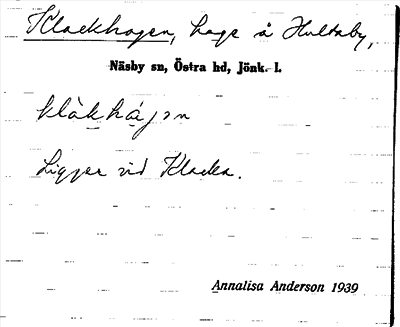 Klackhagen, hage å Hultaby,
Näsby sn, Östra hd, Jönk. l.
klàkhá̱gən
Ligger vid Klacka.
Annalisa Anderson 1939